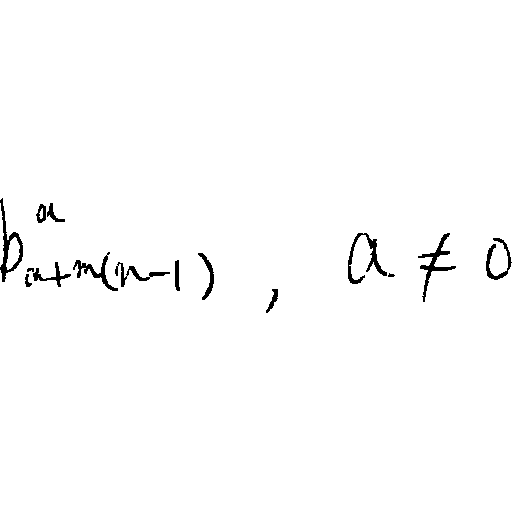 b^a_{a+m(n-1)} , a ≠ 0